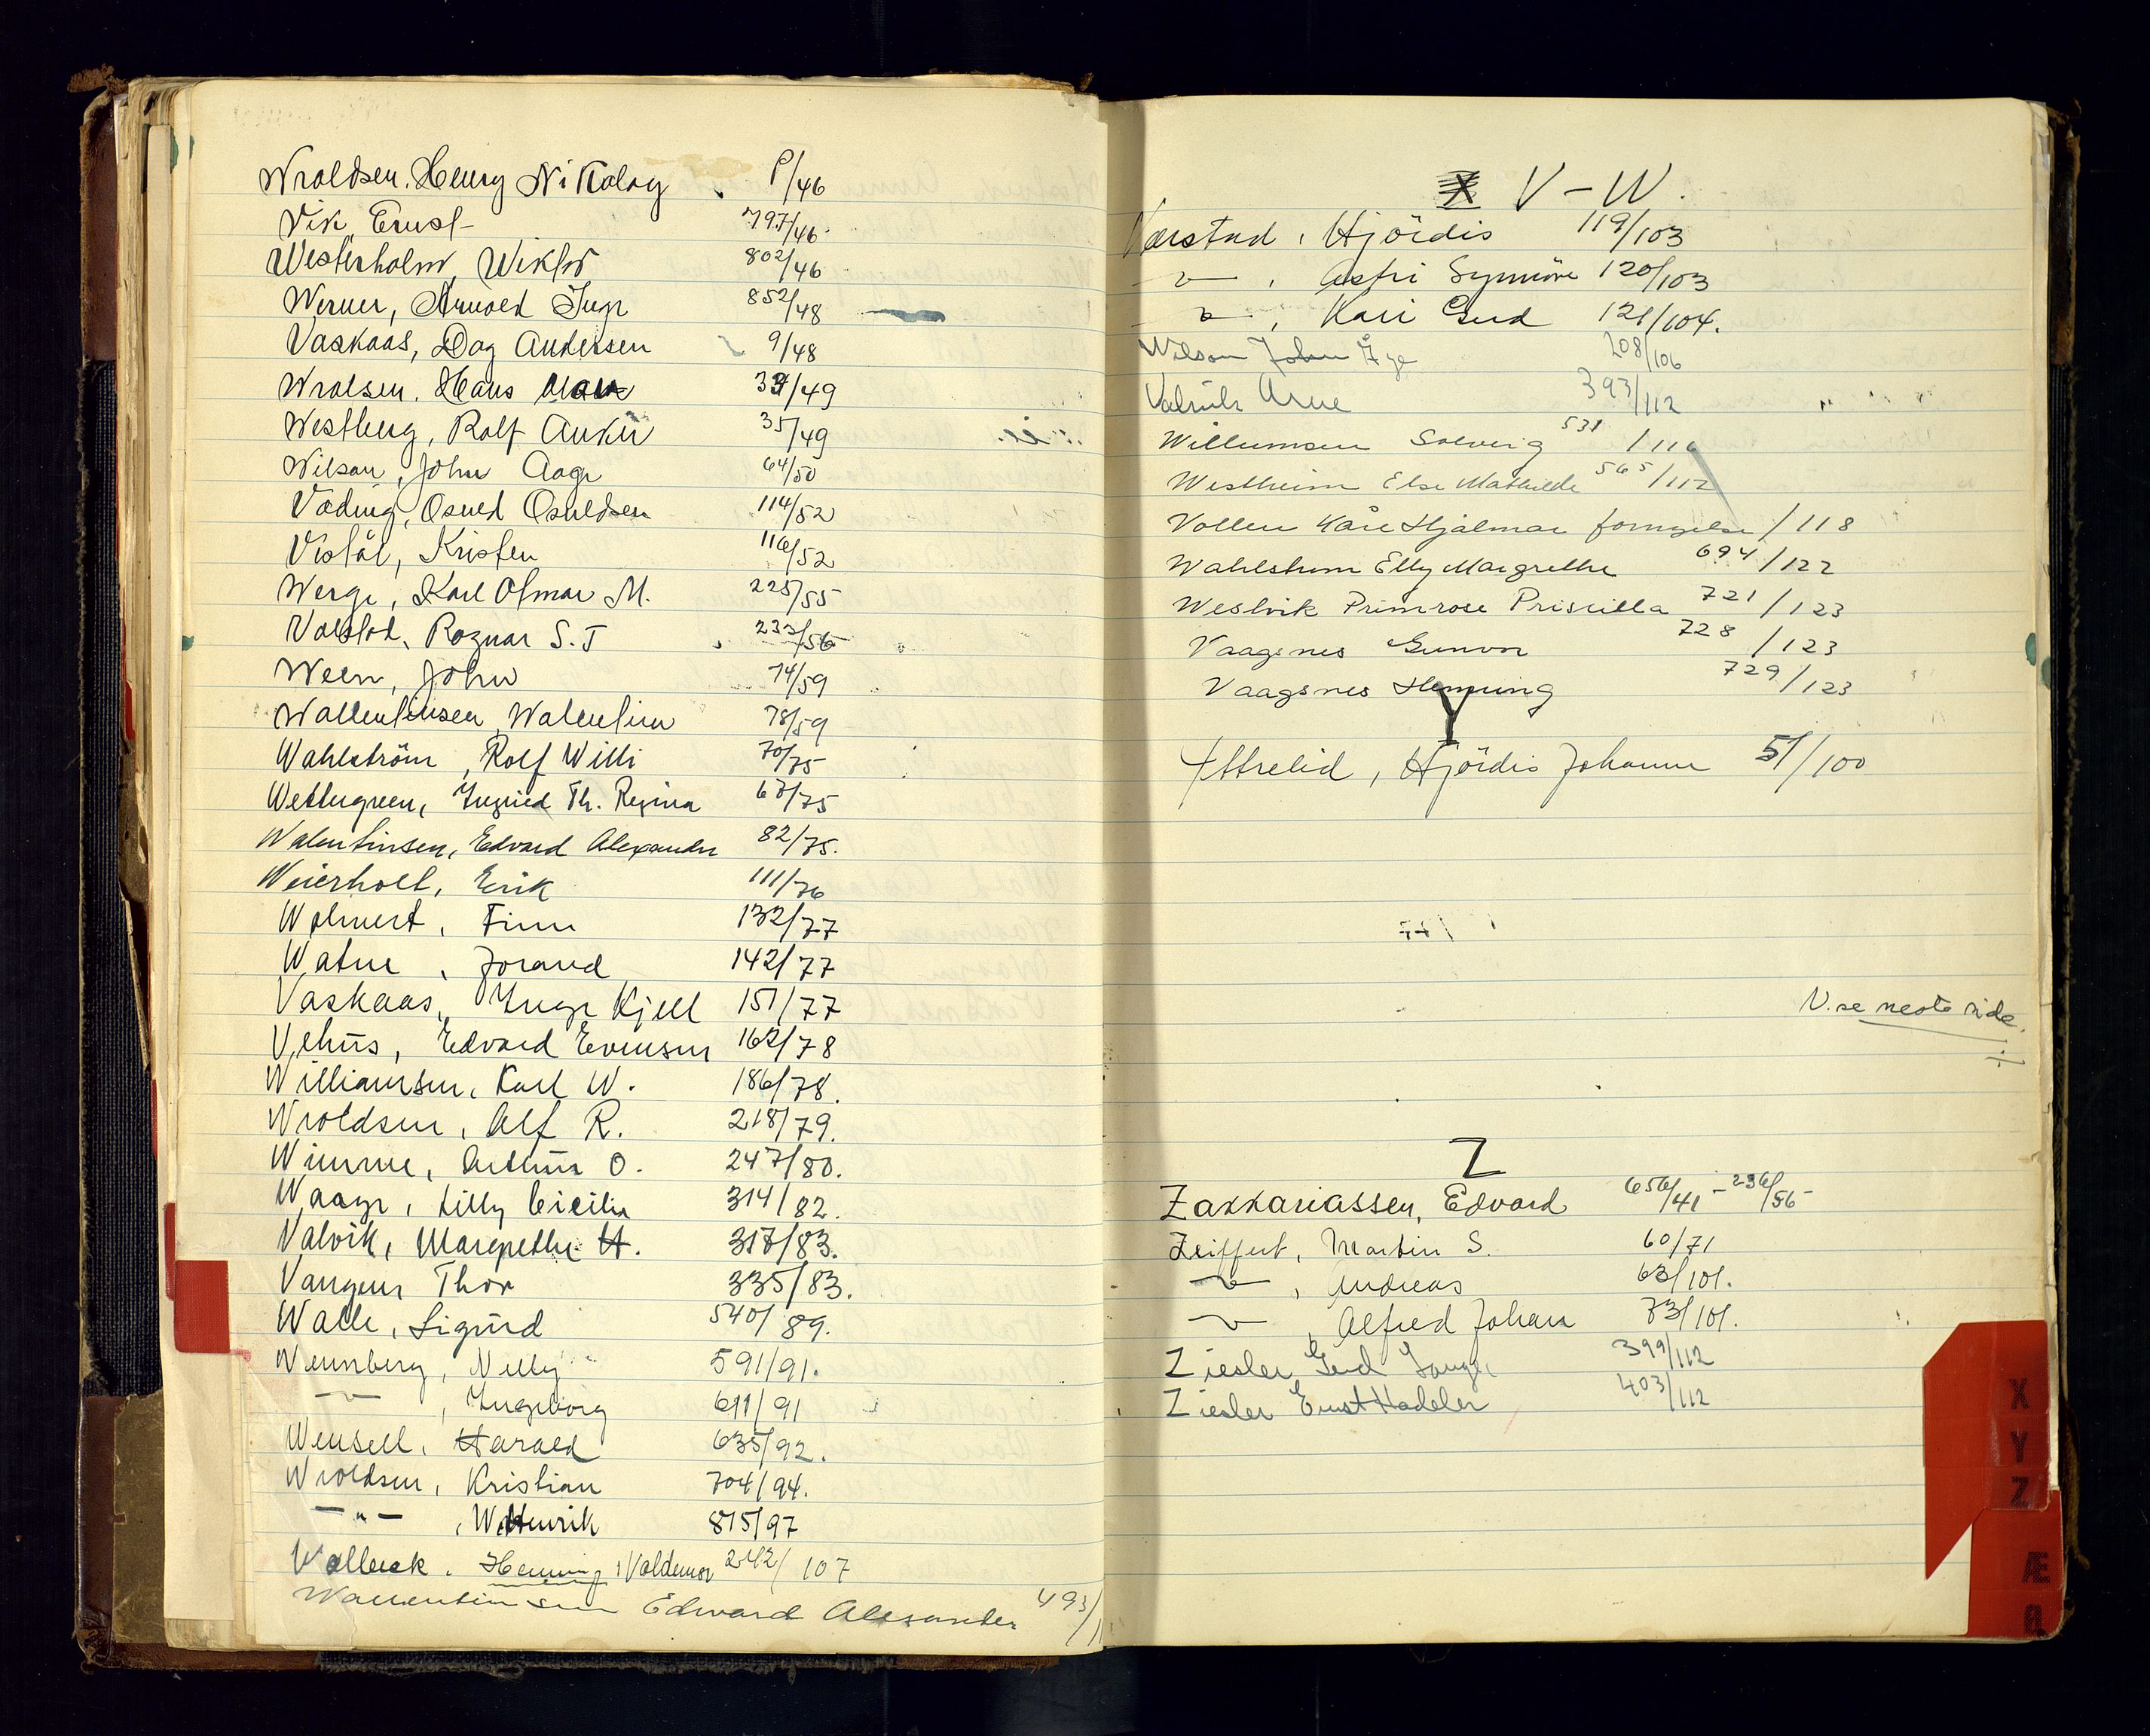 Wroldsen. Henry Nikolay /46
Vik, Ernst 797/46
Westerholm, Wiktor 802/46
Werner, Arnold Inge 852/48
Vaskaas, Dag Andersen 9/48
Wrolsen. Hans 34/49
Westberg, Rolf 35/49
Wilson, John Aage 64/50
Vading, Osuld Osuldsen 114/52
Vistål, Kristen 116/52
Werge, Karl Olmar M. 225/55
Ragnar S. T 233/56
Ween, John 74/59
Wallentinsen, Walentin 78/59
Wahlström, Rolf Willi 70/75
Wettergreen, Ingrid Th. Regina 67/75
Walentinsen, Edvard Alexander 82/75.
Weierholt, Erik 111/76
Wolmert, Finn 132/77
Watne, Jorand 142/77
Vaskaas, Inge Kjell 151/77
Vehus, Edvard Evensen 162/78
Williamsen, Karl W. 186/78.
Wroldsen, Alf R. 218/79.
Wimme, Arthur O. 247/80.
Waage, Lilly Cicilie 314/82.
Valvik, Margrethe H. 317/83.
Vangen Thor 335/83.
Walle, Sigurd 540/89.
Wennberg, Nelly 591/91.
— " —, Ingeborg 611/91
Wensell, Harald 635/92.
Wroldsen, Kristian 704/94.
— " —, W. Henrik 815/97
Wallevik. Henning Valdemar 242/107
Wallentinsen Edward Alexander 493/1
X V - W.
Værstad, Hjördis 119/103
— " —, Astri Synnöve 120/103
— " —, Kari Gerd 121/104.
Wilson John Åge 208/106
Arne 393/112
Willumsen Solveig 531/116
Westheim Else Mathilde 565/117
Vollen Kåre Hjalmar fornyelse /118
Wahlstrøm Elly Margrethe 694/122
Westvik Primrose Priscilla 721/123
Vaagsnes Gunvor 728/123
Vaagsnes Henning 729/123
Y
Yttrelid, Hjördis Johanne 51/100
V. se neste side.
Z
Zakkariassen, Edvard 656/41 - 236/56
Zeiffert, Martin S. 60/71
— " —, Andreas 63/101.
— " —, Alfred Johan 73/101.
Ziesler Gerd 399/112
Ziesler Ernst Hadeler 403/112
X
Y
Z
Æ
Ø